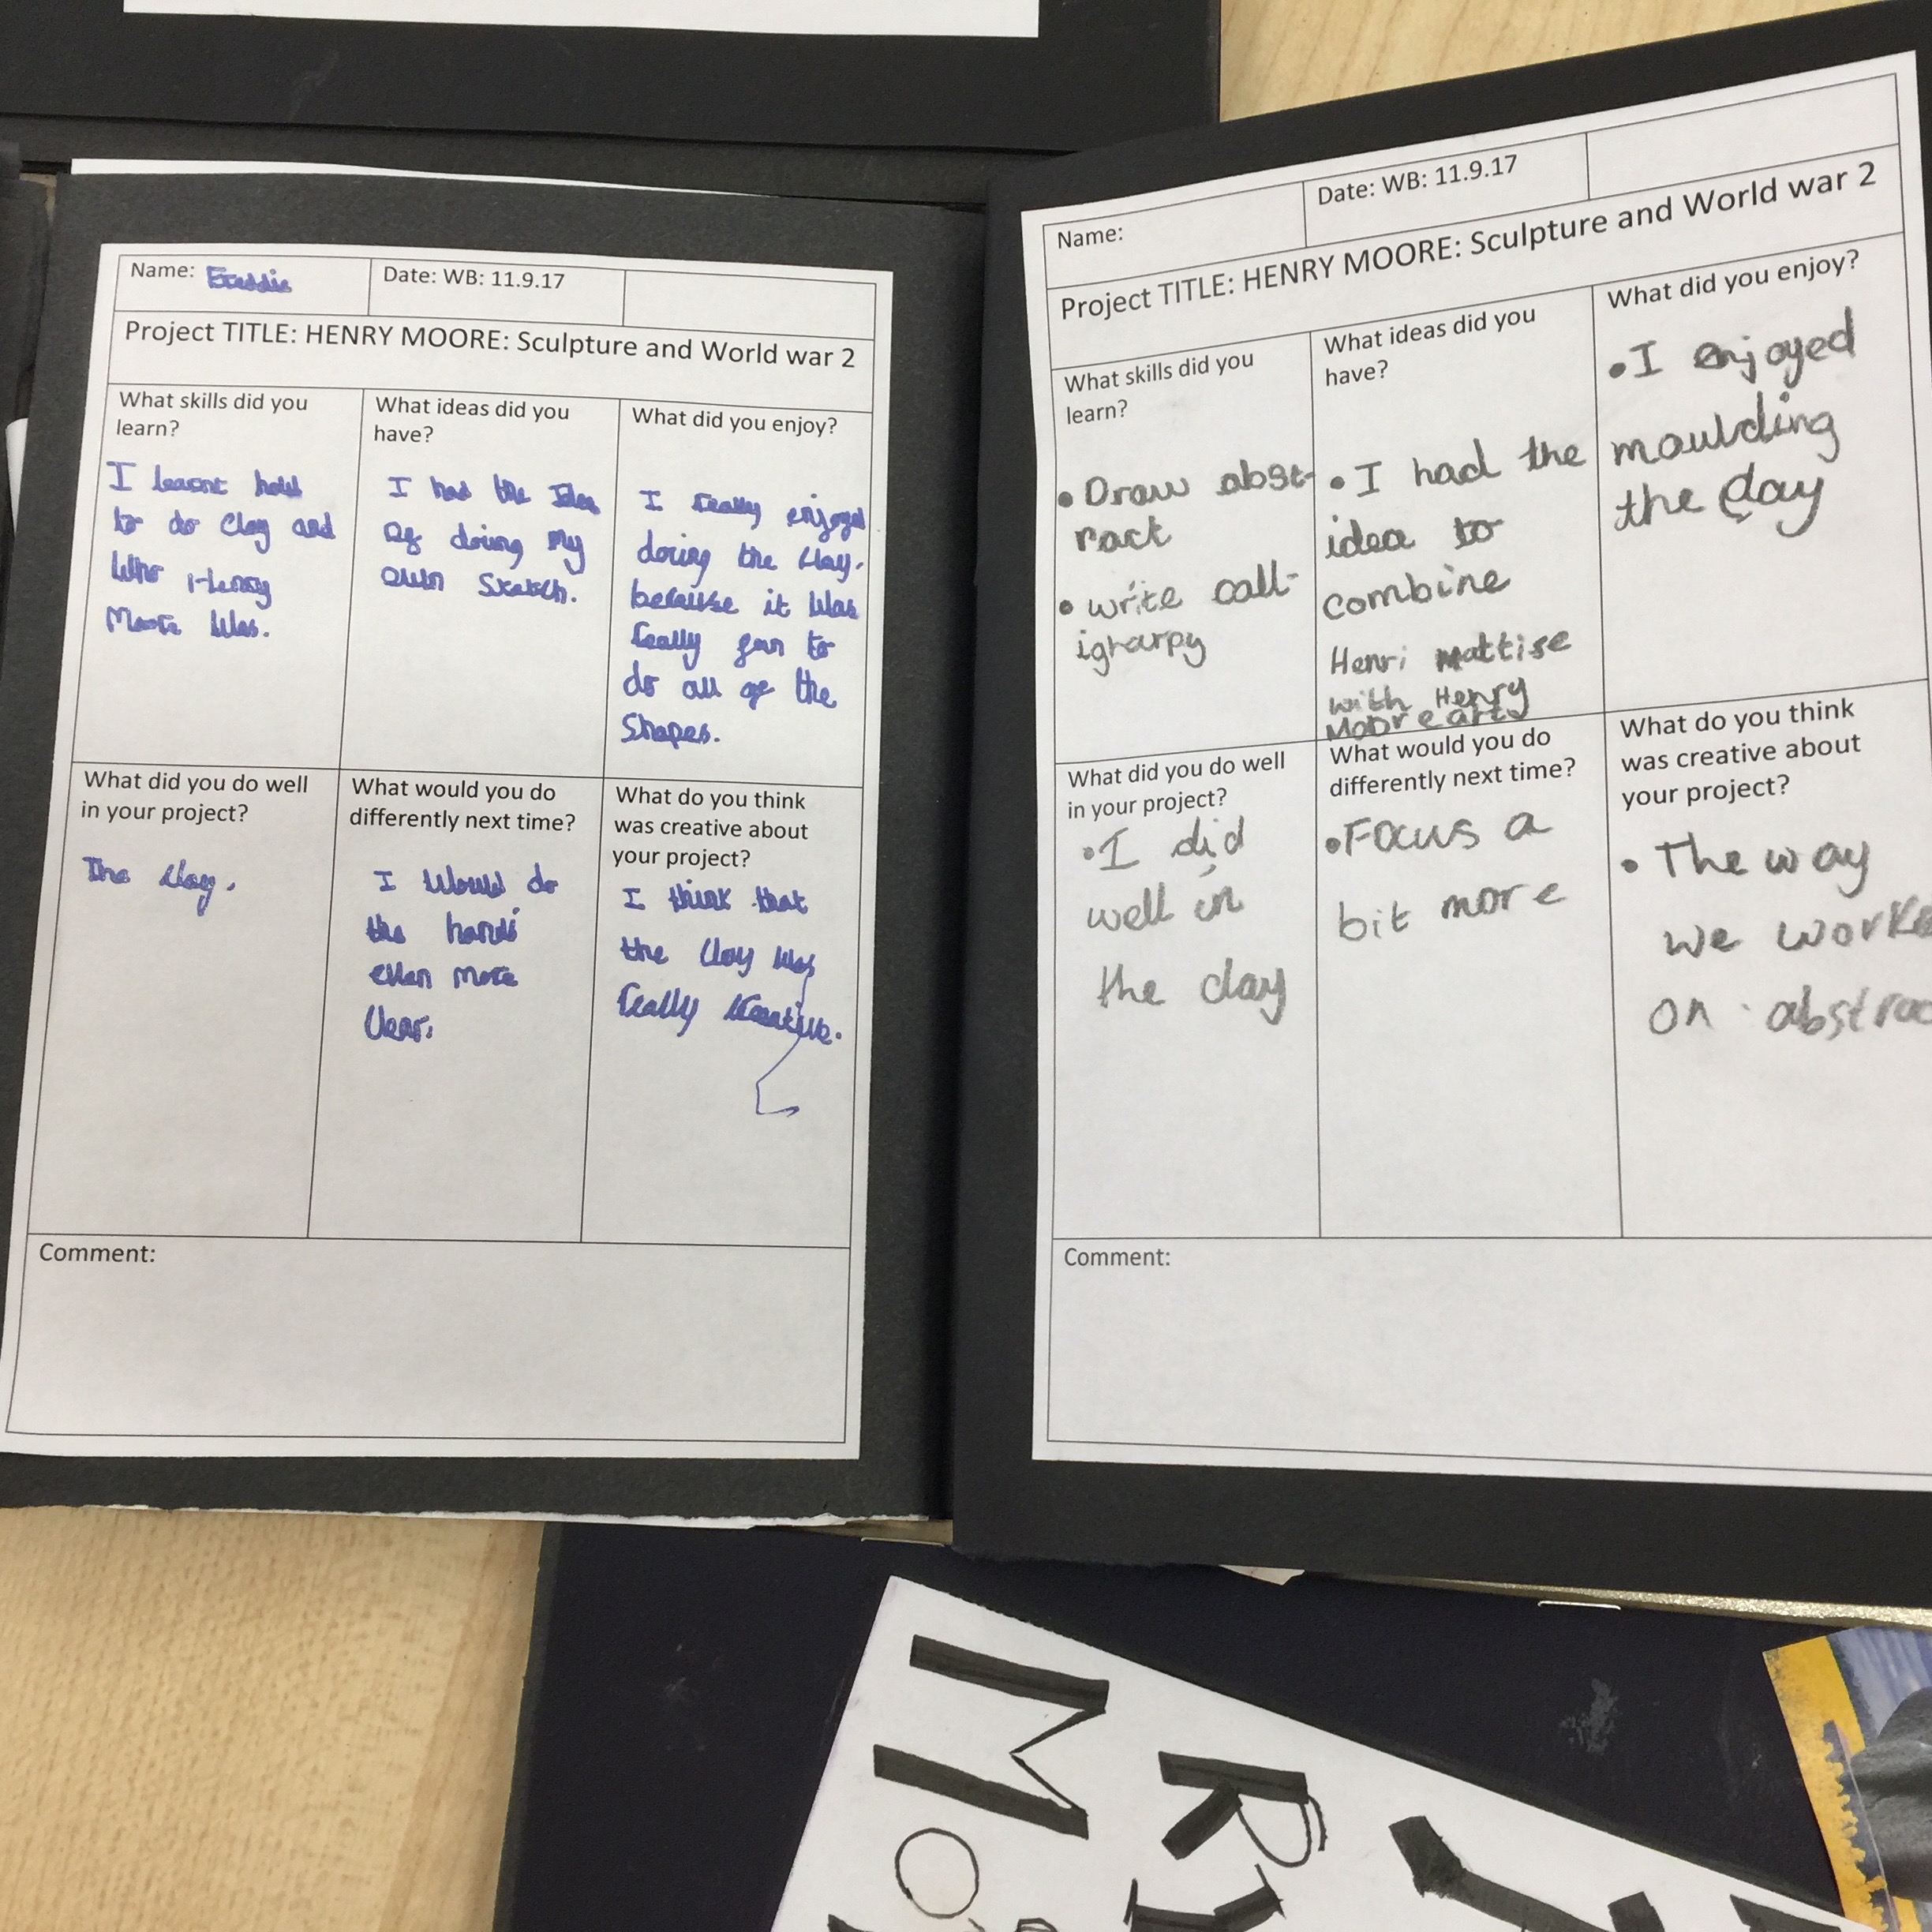 Name: Freddie
Date: WB: 11.9.17
Project TITLE: HENRY MOORE: Sculpture and World war 2
What skills did you
learn?
I learnt how
to do Clay and
Who Henry
Moore Was.
What ideas did you
have?
I had the Idea
of doing my
own Sketch.
What did you enjoy?
I really enjoyed
doing the Clay.
because it Was
really fun to
do all of the
Shapes.
What did you do well
in your project?
The Clay.
What would you do
differently next time?
I Would do
the hands
even more
Clear.
What do you think
was creative about
your project?
I think that
the Clay Was
really Creative.
Comment:
Name:
Date: WB: 11.9.17
Project TITLE: HENRY MOORE: Sculpture and World war 2
What skills did you
learn?
• Draw abst-
ract
• write call-
igharpy
What ideas did you
have?
• I had the
idea to
combine
Henri Mattise
with Henry
Moore arts
What did you enjoy?
• I enjoyed
moulding
the clay
What did you do well
in your project?
• I did
well in
the clay
What would you do
differently next time?
• Focus a
bit more
What do you think
was creative about
your project?
• The way
we worke
on abstrac
Comment: